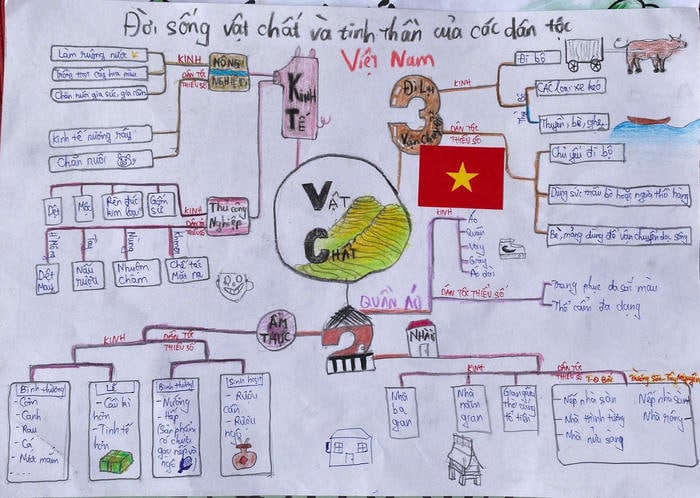 Đời sống vật chất và tinh thần của các dân tộc
Việt Nam
Làm ruộng nước
Trồng trọt cây hoa màu
Chăn nuôi gia súc, gia cầm
Kinh tế nương rẫy
Chăn nuôi
KINH
DÂN TỘC
THIỂU SỐ
NÔNG
NGHIỆP
KINH
TẾ
Dệt
Mộc
Rèn đúc
kim loại
Gốm
sứ
KINH
DÂN TỘC
THIỂU SỐ
Thủ công
Nghiệp
H'Mông
Tày
Nùng
Khmer
Dệt
May
Nấu
rượu
Nhuộm
chàm
Chế tác
Mặt nạ
VẬT
CHẤT
3
Đi Lại
Vận chuyển
KINH
Đi bộ
Các loại xe kéo
Thuyền, bè, ghe
DÂN TỘC
THIỂU SỐ
Chủ yếu đi bộ
Dùng sức trâu bò hoặc người thồ hàng
Bè, mảng dùng để vận chuyển dọc sông
QUẦN ÁO
KINH
Áo
Quần
Váy
Giày
Áo dài
DÂN TỘC THIỂU SỐ
Trang phục đa sắc màu
Thổ cẩm đa dạng
2
ẨM
THỰC
KINH
DÂN TỘC
THIỂU SỐ
Bình thường
- Cơm
- Canh
- Rau
- Cá
- Nước mắm
....
Lễ
- Cầu kì
hơn
- Tinh tế
hơn
Bình thường
- Nướng
- Hấp
(Sản phẩm
có chứa
gạo nếp và
ngô
Sinh hoạt
- Rượu
cần
- Rượu
ngô
NHÀ Ở
KINH
Nhà
ba
gian
Nhà
năm
gian
Gian giữa
thờ cúng
tổ tiên
DÂN TỘC
THIỂU SỐ
T-Đ Bắc
- Nếp nhà sàn
- Nhà trình tường
- Nhà nửa sàng
Trường Sơn - Tây Nguyên
Nếp nhà sàn
Nhà rông